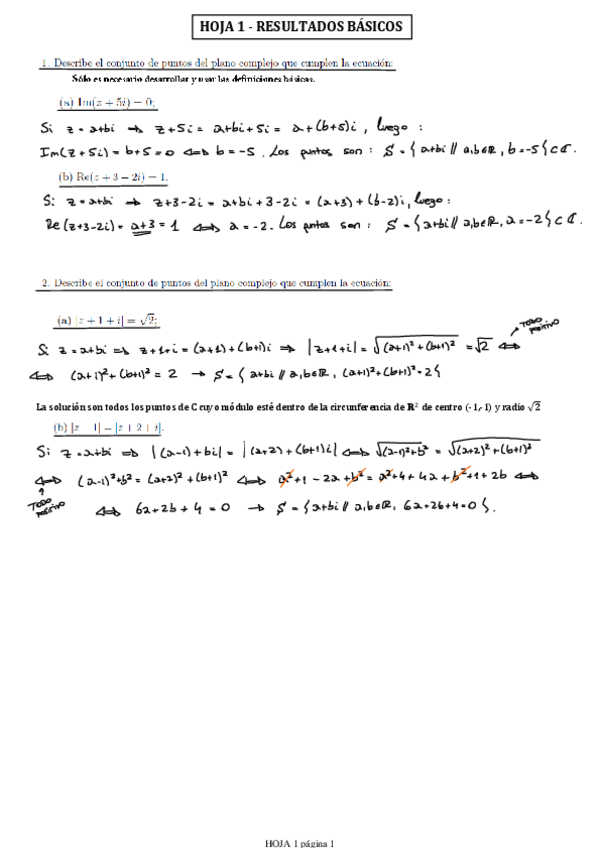 HOJA 1 - RESULTADOS BÁSICOS
1. Describe el conjunto de puntos del plano complejo que cumplen la ecuación:
Sólo es necesario desarrollar y usar las definiciones básicas.
(a) Im(z + 5i) = 0;
Si z = a+bi ⇒ z+5i = a+bi+5i = a+(b+5)i, luego:
Im(z+5i) = b+5 = 0 ⇔ b = -5. Los puntos son: S = { a+bi // a,b∈ℝ, b = -5 } ⊂ ℂ.
(b) Re(z + 3 − 2i) = 1.
Si: z = a+bi ⇒ z+3-2i = a+bi+3-2i = (a+3)+(b-2)i, luego:
Re(z+3-2i) = a+3 = 1 ⇔ a = -2. Los puntos son: S = { a+bi // a,b∈ℝ, a = -2 } ⊂ ℂ.
2. Describe el conjunto de puntos del plano complejo que cumplen la ecuación:
(a) |z + 1 + i| = √2;
TODO
POSITIVO
Si z = a+bi ⇒ z+1+i = (a+1)+(b+1)i ⇒ |z+1+i| = √(a+1)²+(b+1)² = √2 ⇔
⇔ (a+1)²+(b+1)² = 2 → S = { a+bi // a,b∈ℝ, (a+1)²+(b+1)² = 2 }
La solución son todos los puntos de C cuyo módulo esté dentro de la circunferencia de R² de centro (-1,-1) y radio √2
(b) |z − 1| = |z + 2 + i|.
Si: z = a+bi ⇒ |(a-1)+bi| = |(a+2)+(b+1)i| ⇔ √(a-1)²+b² = √(a+2)²+(b+1)²
⇔ (a-1)²+b² = (a+2)²+(b+1)² ⇔ a²+1-2a+b² = a²+4+4a+b²+1+2b ⇔
TODO
POSITIVO
⇔ 6a+2b+4 = 0 → S = { a+bi // a,b∈ℝ, 6a+2b+4=0 }.
HOJA 1 página 1